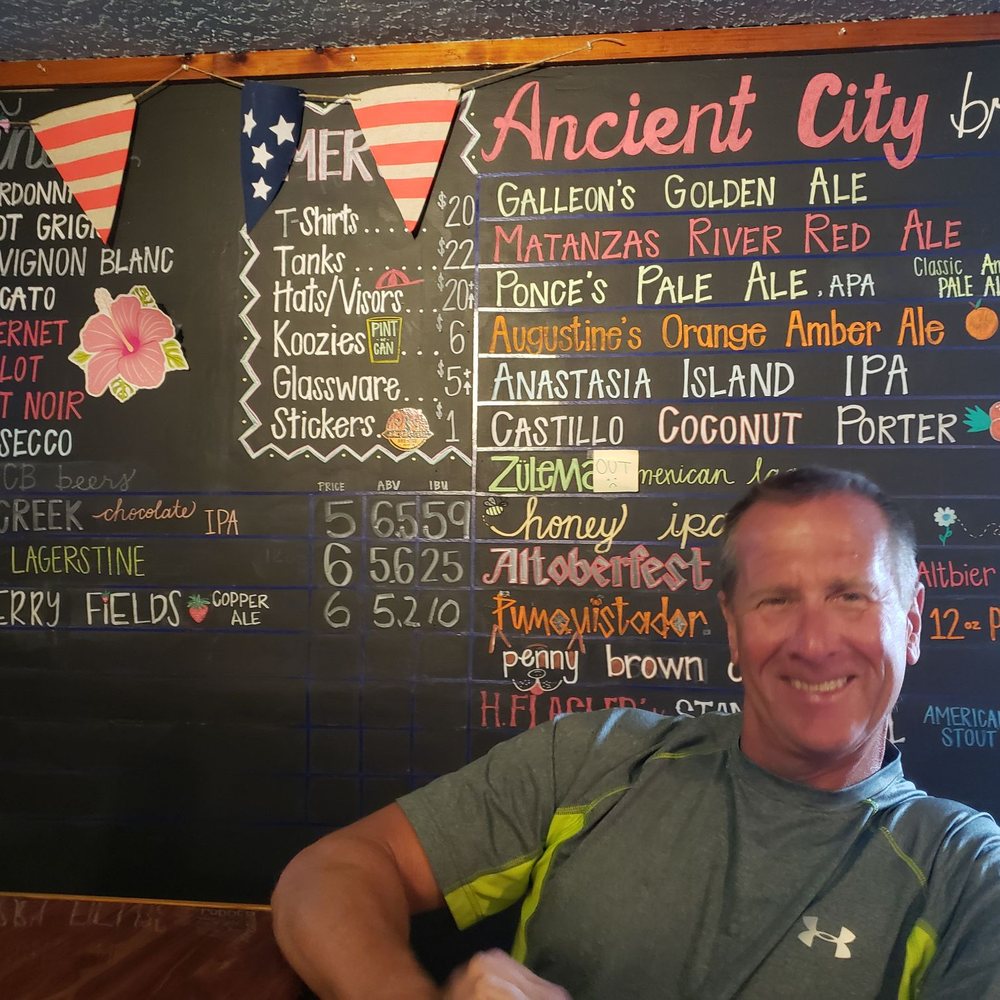 RDONN
OT GRIG
VIGNON BLANC
CATO
ERNET
LOT
T NOIR
SECCO
CB beers
PRICE ABV IBU
CREEK chocolate IPA 5 6.5 59
LAGERSTINE 6 5.6 25
ERRY FIELDS COPPER ALE 6 5.2 10
MER
T-Shirts..... $20
Tanks... $22
Hats/Visors. $20
Koozies PINT OR CAN ... $6
Glassware... $5
Stickers. $1
Ancient City br
GALLEON'S GOLDEN ALE
MATANZAS RIVER RED ALE
PONCE'S PALE ALE, APA Classic Am
PALE AL
AUGUSTINE'S ORANGE AMBER ALE
ANASTASIA ISLAND IPA
CASTILLO COCONUT PORTER
ZÜLEMA OUT merican la
honey ipa
Altoberfest Altbier
Pumquistador 12oz P
penny brown
H.FLAGLER' STAN
AMERICAN
STOUT